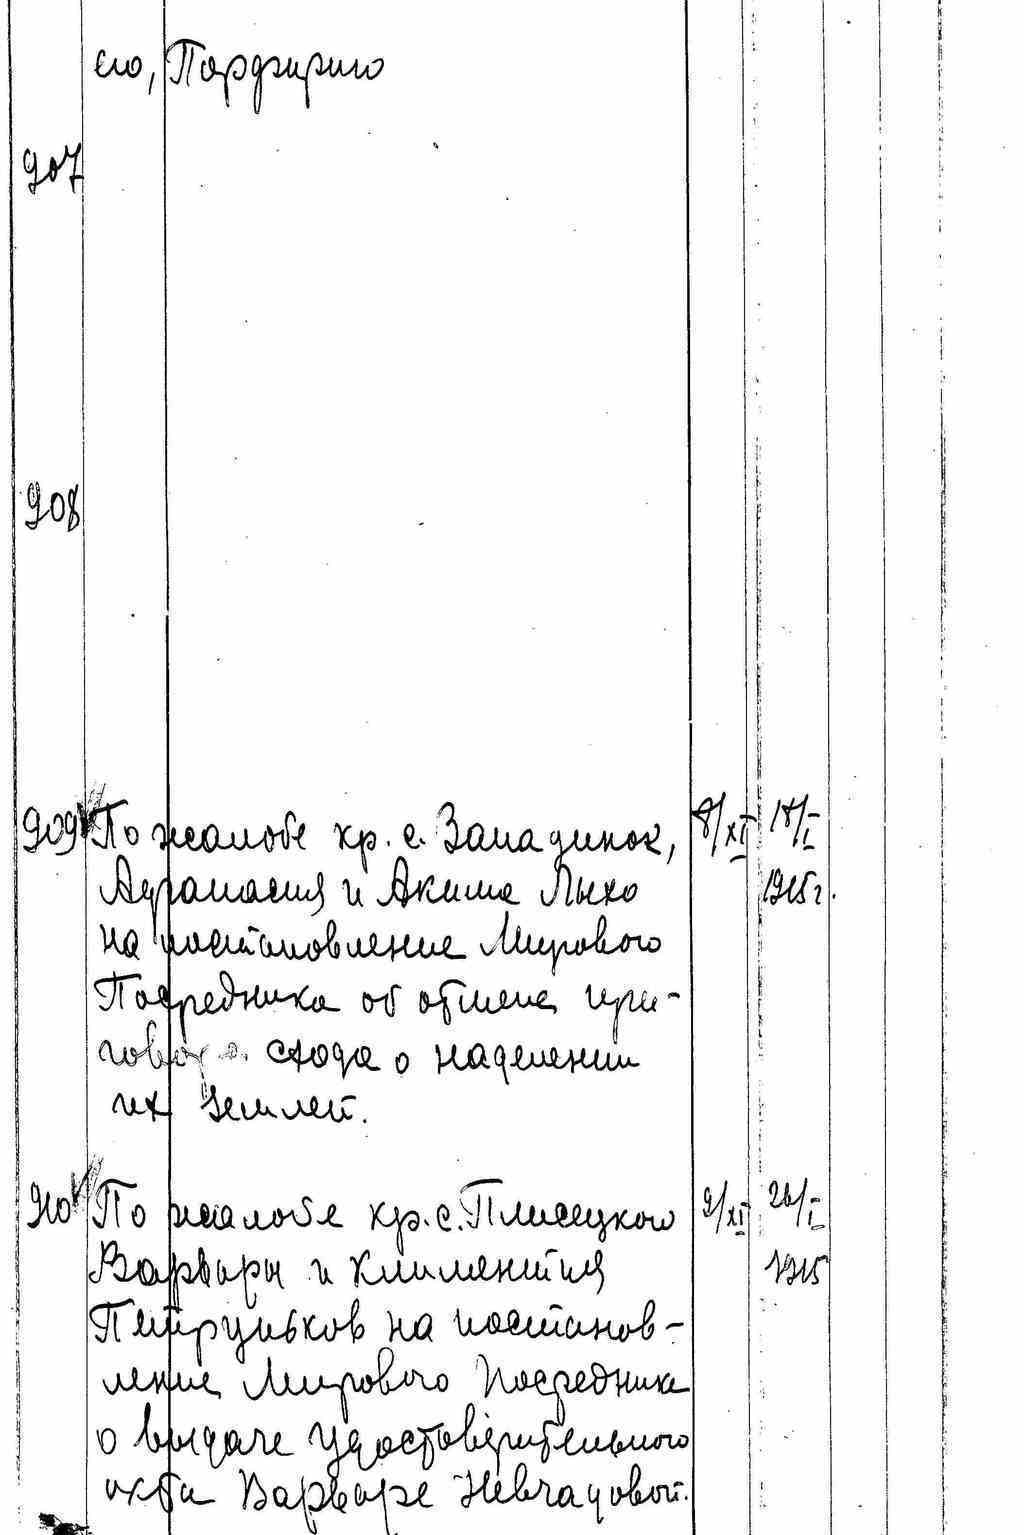 его, Порфирию
907
908
909 По жалобе кр. с. Западинок, 8/XI 18/I
Афанасия и Акима Лыхо 1915 г.
на постановление Мирового
Посредника об отмене при-
говора схода о наделении
их землей.
910 По жалобе кр. с. Плисецкого 9/XI 26/I
Варвары и Климентия 1915
Петруньков на постанов-
ление Мирового Посредника
о выдаче удостоверительного
акта Варваре